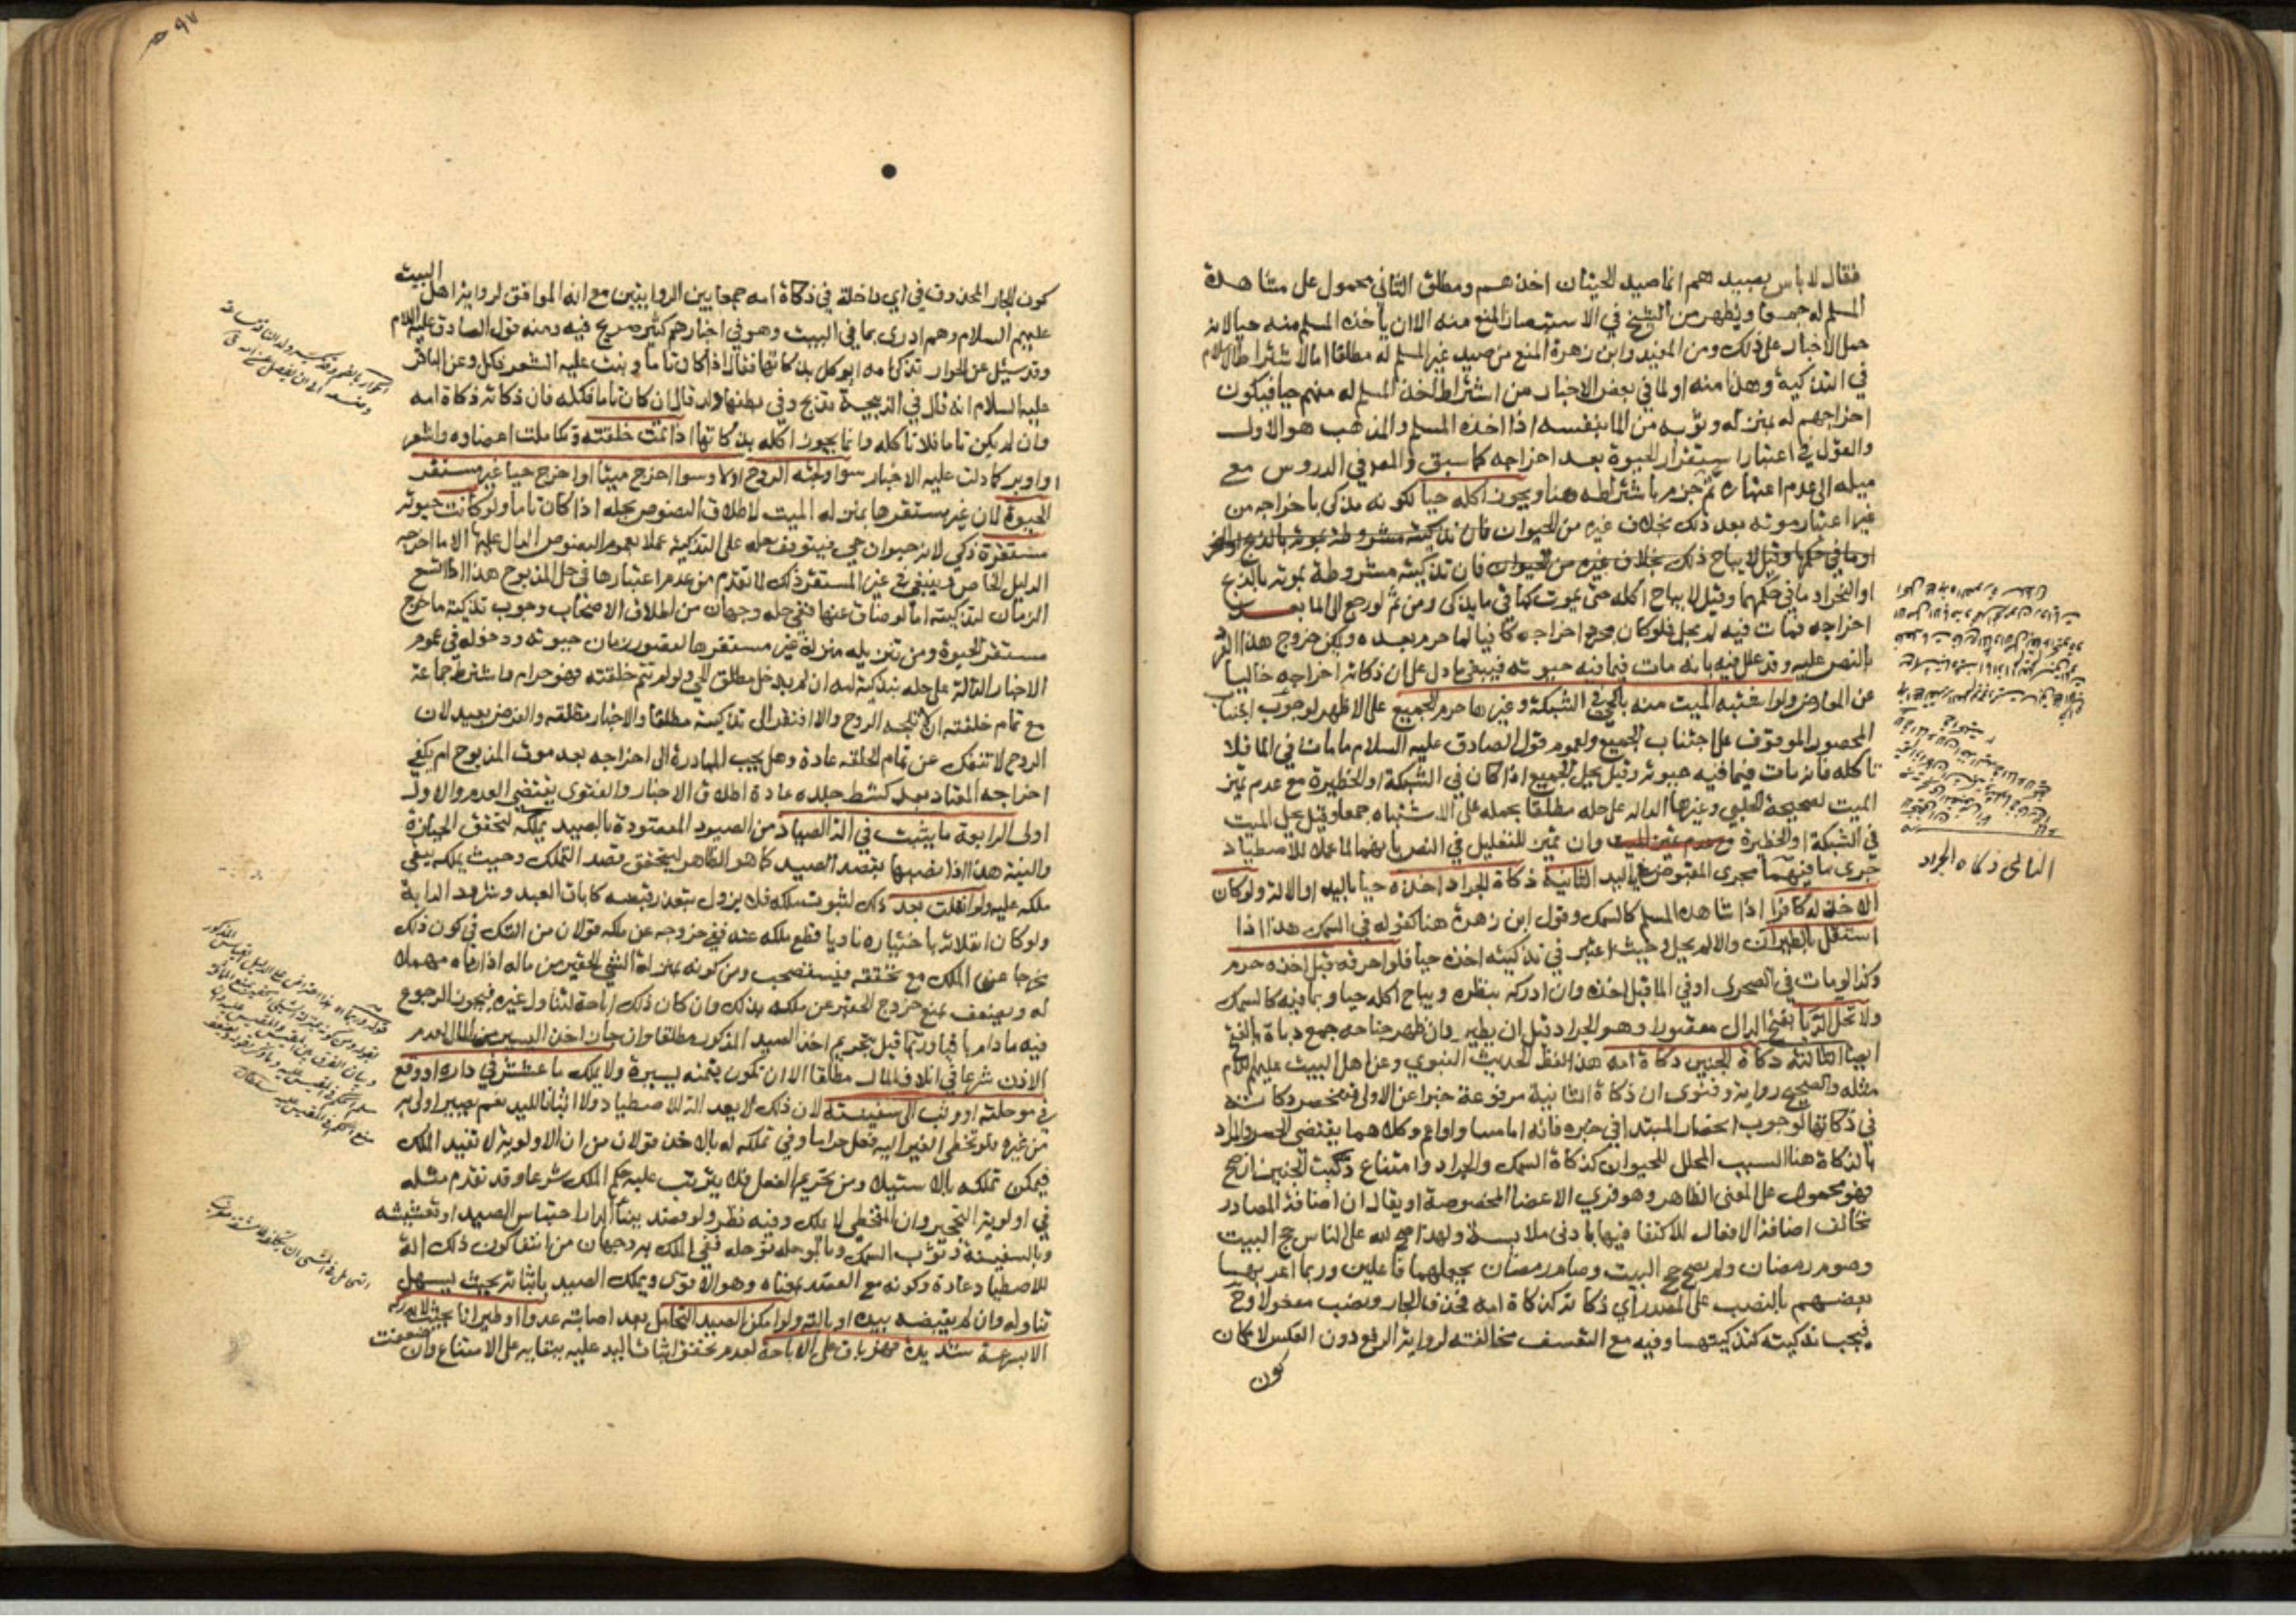 فقال لا بأس بصيدهم انما صيد الحيتان اخذهم ومطلق الثاني محمول على مشاهدة
المسلم له جمعا ويظهر من الشيخ في الاستبصار المنع منه الا ان يأخذه المسلم منه حيا لانه
حمل الاخبار على ذلك ومن المفيد وابن زهرة المنع من صيد غير المسلم له مطلقا اما لاشتراط الاسلام
في التذكية وهذا منه او لما في بعض الاخبار من اشتراط اخذ المسلم له منهم حيا فيكون
اخراجهم له بمنزلة وثوبه من الماء بنفسه اذا اخذه المسلم والمذهب هو الاول
والقول في اعتبار استقرار الحيوة بعد اخراجه كما سبق والمص في الدروس مع
ميله الى عدم اعتباره ثم جزم باشتراطه هنا ويجوز اكله حيا لكونه مذكى باخراجه من
غير اعتبار موته بعد ذلك بخلاف غيره من الحيوان فان تذكيته مشروطة بموته بالذبح او النحر
او ما في حكمها وقيل لا يباح ذلك بخلاف غيره من الحيوان فان تذكيته مشروطة بموته بالذبح
او النحر او ما في حكمهما وقيل لا يباح اكله حتى يموت كباقي ما يذكى ومن ثم لو رجع الى الماء بعد
اخراجه فمات فيه لم يحل فلو كان مجرد اخراجه كافيا لما حرم بعده ويمكن خروج هذا الفرد
بالنص عليه وقد علل فيه بانه مات فيما فيه حيوته فيبقى ما دل على ان ذكاته اخراجه خاليا
عن المعارض ولو اشتبه الميت منه بالحي في الشبكة وغيرها حرم الجميع على الاظهر لوجوب اجتناب
المحصور الموقوف على اجتناب الجميع ولعموم قول الصادق عليه السلام ما مات في الماء فلا
تاكله فانه مات فيما فيه حيوته وقيل يحل الجميع اذا كان في الشبكة او الحظيرة مع عدم تميز
الميت لصحيحة الحلبي وغيرها الدالة على حله مطلقا بحمله على الاشتباه جمعا وقيل يحل الميت
في الشبكة او الحظيرة مع عدم تميز الميت وان تميز للتعليل في النص بانهما لما عملا للاصطياد
جرى ما فيهما مجرى المقبوض باليد الثانية ذكاة الجراد اخذه حيا باليد او الالة ولو كان
الاخذ له كافرا اذا شاهده المسلم كالسمك وقول ابن زهرة هنا كقوله في السمك هذا اذا
استقل بالطيران والا لم يحل وحيث اعتبر في تذكيته اخذه حيا فلو احرقه قبل اخذه حرم
وكذا لو مات في الصحرى او في الماء قبل اخذه وان ادركه بنظره ويباح اكله حيا وبما فيه كالسمك
ولا يحل الدبا بفتح الدال مقصورا وهو الجراد قبل ان يطير وان ظهر جناحه جمع دباة بالفتح
ايضا الثالثة ذكاة الجنين ذكاة امه هذا لفظ الحديث النبوي وعن اهل البيت عليهم السلام
مثله والصحيح رواية وفتوى ان ذكاة الثانية مرفوعة خبرا عن الاولى فتنحصر ذكاته
في ذكاتها لوجوب انحصار المبتدا في خبره فانه اما مساو او اعم وكلاهما يقتضي الحصر والمراد
بالذكاة هنا السبب المحلل للحيوان كذكاة السمك والجراد وامتناع ذكيت الجنين ان صح
فهو محمول على المعنى الظاهر وهو فري الاعضا المخصوصة او يقال ان اضافة المصادر
تخالف اضافة الافعال للاكتفا فيها بادنى ملابسة ولهذا صح لله على الناس حج البيت
وصوم رمضان ولم يصح حج البيت وصام رمضان بجعلهما فاعلين وربما اعربها
بعضهم بالنصب على المصدر أي ذكاته كذكاة امه فحذف الجار ونصب مفعولا وح
فيجب تذكيته كتذكيتها وفيه مع التعسف مخالفته لرواية الرفع دون العكس لامكان
كون
الثاني ذكاه الجراد
٩٧
كون الجار المحذوف في أي داخلة في ذكاة امه جمعا بين الروايتين مع انه الموافق لرواية اهل البيت
عليهم السلام وهم ادرى بما في البيت وهو في اخبارهم كثير صريح فيه ومنه قول الصادق عليه السلام
وقد سئل عن الحوار تذكى امه ايوكل بذكاتها فقال اذا كان تاما ونبت عليه الشعر فكل وعن الباقر
عليه السلام انه قال في الذبيحة تذبح وفي بطنها ولد قال ان كان تاما فكله فان ذكاته ذكاة امه
وان لم يكن تاما فلا تاكله وانما يجوز اكله بذكاتها اذا تمت خلقته وتكاملت اعضاوه واشعر
او اوبر كما دلت عليه الاخبار سوا ولجته الروح اولا وسوا اخرج ميتا او اخرج حيا غير مستقر
الحيوة لان غير مستقرها بمنزلة الميت لاطلاق النصوص بحله اذا كان تاما ولو كانت حيوته
مستقرة ذكي لانه حيوان حي فيتوقف حله على التذكية عملا بعموم النصوص الدالة عليها الا ما اخرجه
الدليل الخاص فينبغي في غير المستقر ذلك لما تقدم من عدم اعتبارها في حل المذبوح هذا اذا اتسع
الزمان لتذكيته اما لو ضاق عنها ففي حله وجهان من اطلاق الاصحاب وجوب تذكية ما خرج
مستقر الحيوة ومن تنزيله منزلة غير مستقرها لقصور زمان حيوته ودخوله في عموم
الاخبار الدالة على حله بتذكية امه ان لم يدخل مطلق الحي ولو لم تتم خلقته فهو حرام واشترط جماعة
مع تمام خلقته ان لا تلجه الروح والا افتقر الى تذكيته مطلقا والاخبار مطلقه والفرض بعيد لان
الروح لا تنفك عن تمام الخلقه عادة وهل يجب المبادرة الى اخراجه بعد موت المذبوح ام يكفي
اخراجه المعتاد بعد كشط جلده عادة اطلاق الاخبار والفتوى يقتضي العدم والاول
اولى الرابعة ما يثبت في الة الصياد من الصيود المقصودة بالصيد يملكه لتحقق الحيازة
والنية هذا اذا نصبها بقصد الصيد كما هو الظاهر ليتحقق قصد التملك وحيث يملكه يبقى
ملكه عليه ولو انفلت بعد ذلك لثبوت ملكه فلا يزول بتعذر قبضه كاباق العبد وشرود الدابة
ولو كان انفلاته باختياره ناويا قطع ملكه عنه ففي خروجه عن ملكه قولان من الشك في كون ذلك
مخرجا عن الملك مع تحققه فيستصحب ومن كونه بمنزلة الشي الحقير من ماله اذا رماه مهملا
له ويضعف بمنع خروج الحقير عن ملكه بذلك وان كان ذلك اباحة لتناول غيره فيجوز الرجوع
فيه ما دام باقيا وربما قيل بتحريم اخذ الصيد المذكور مطلقا وان جاز اخذ اليسير من المال لعدم
الاذن شرعا في اتلاف المال مطلقا الا ان تكون قيمته يسيرة ولا يملك ما عشش في داره او وقع
في موحلته او وثب الى سفينته لان ذلك لا يعد الة للاصطياد ولا اثباتا لليد نعم يصير اولى به
من غيره فلو تخطى الغير اليه فعل حراما وفي تملكه له بالاخذ قولان من ان الاولوية لا تفيد الملك
فيمكن تملكه بالاستيلا ومن تحريم الفعل فلا يترتب عليه حكم الملك شرعا وقد تقدم مثله
في اولوية التحجير وان المتخطي لا يملك وفيه نظر ولو قصد ببناء الدار احتباس الصيد او تعشيشه
وبالسفينة وثوب السمك وبالموحلة توحله ففي الملك به وجهان من انتفا كون ذلك الة
للاصطياد عادة وكونه مع القصد بمعناه وهو الاقوى ويملك الصيد باثباته بحيث يسهل
تناوله وان لم يقبضه بيده او بالته ولو امكن الصيد التحامل بعد اصابته عدوا او طيرانا بحيث لا يدركه
الا بسرعة شديدة فهو باق على الاباحة لعدم تحقق اثبات اليد عليه ببقائه على الامتناع وان ضعفت